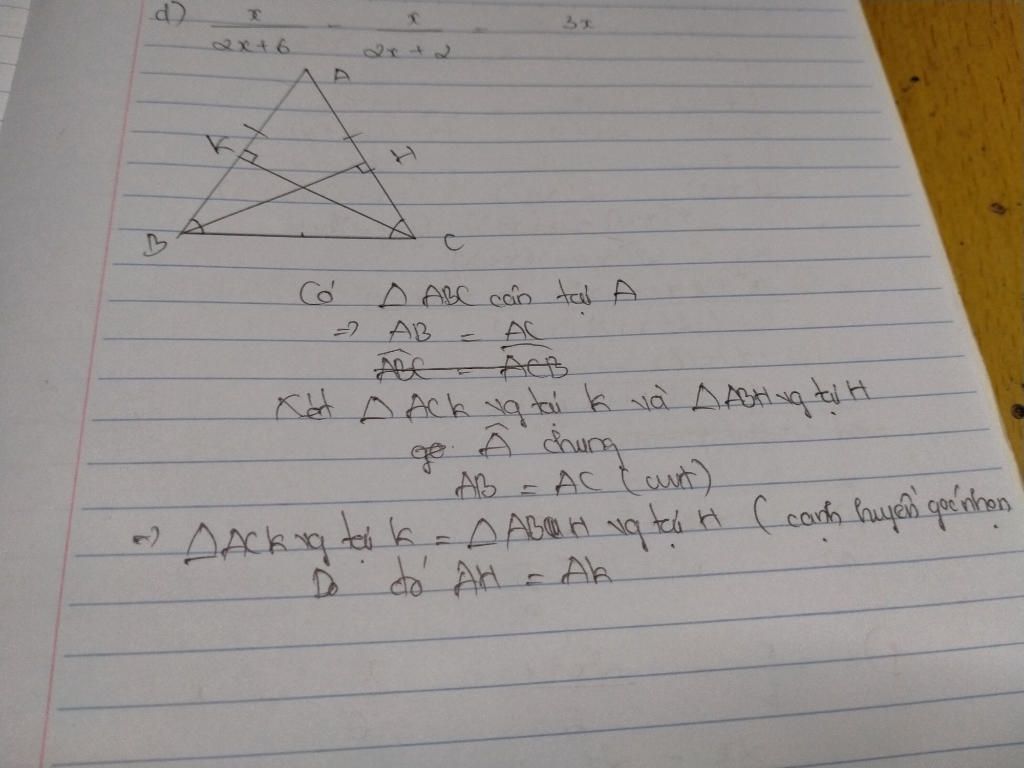 d) x/(2x+6) - x/(2x+2) = 3x
A
K
H
B
C
Có △ ABC cân tại A
=> AB = AC
ABC = ACB
Xét △ ACK vg tại K và △ABH vg tại H
Â chung
AB = AC (cmt)
=> △ACK vg tại K = △ABH vg tại H (cạnh huyền góc nhọn
Do đó AH = AK